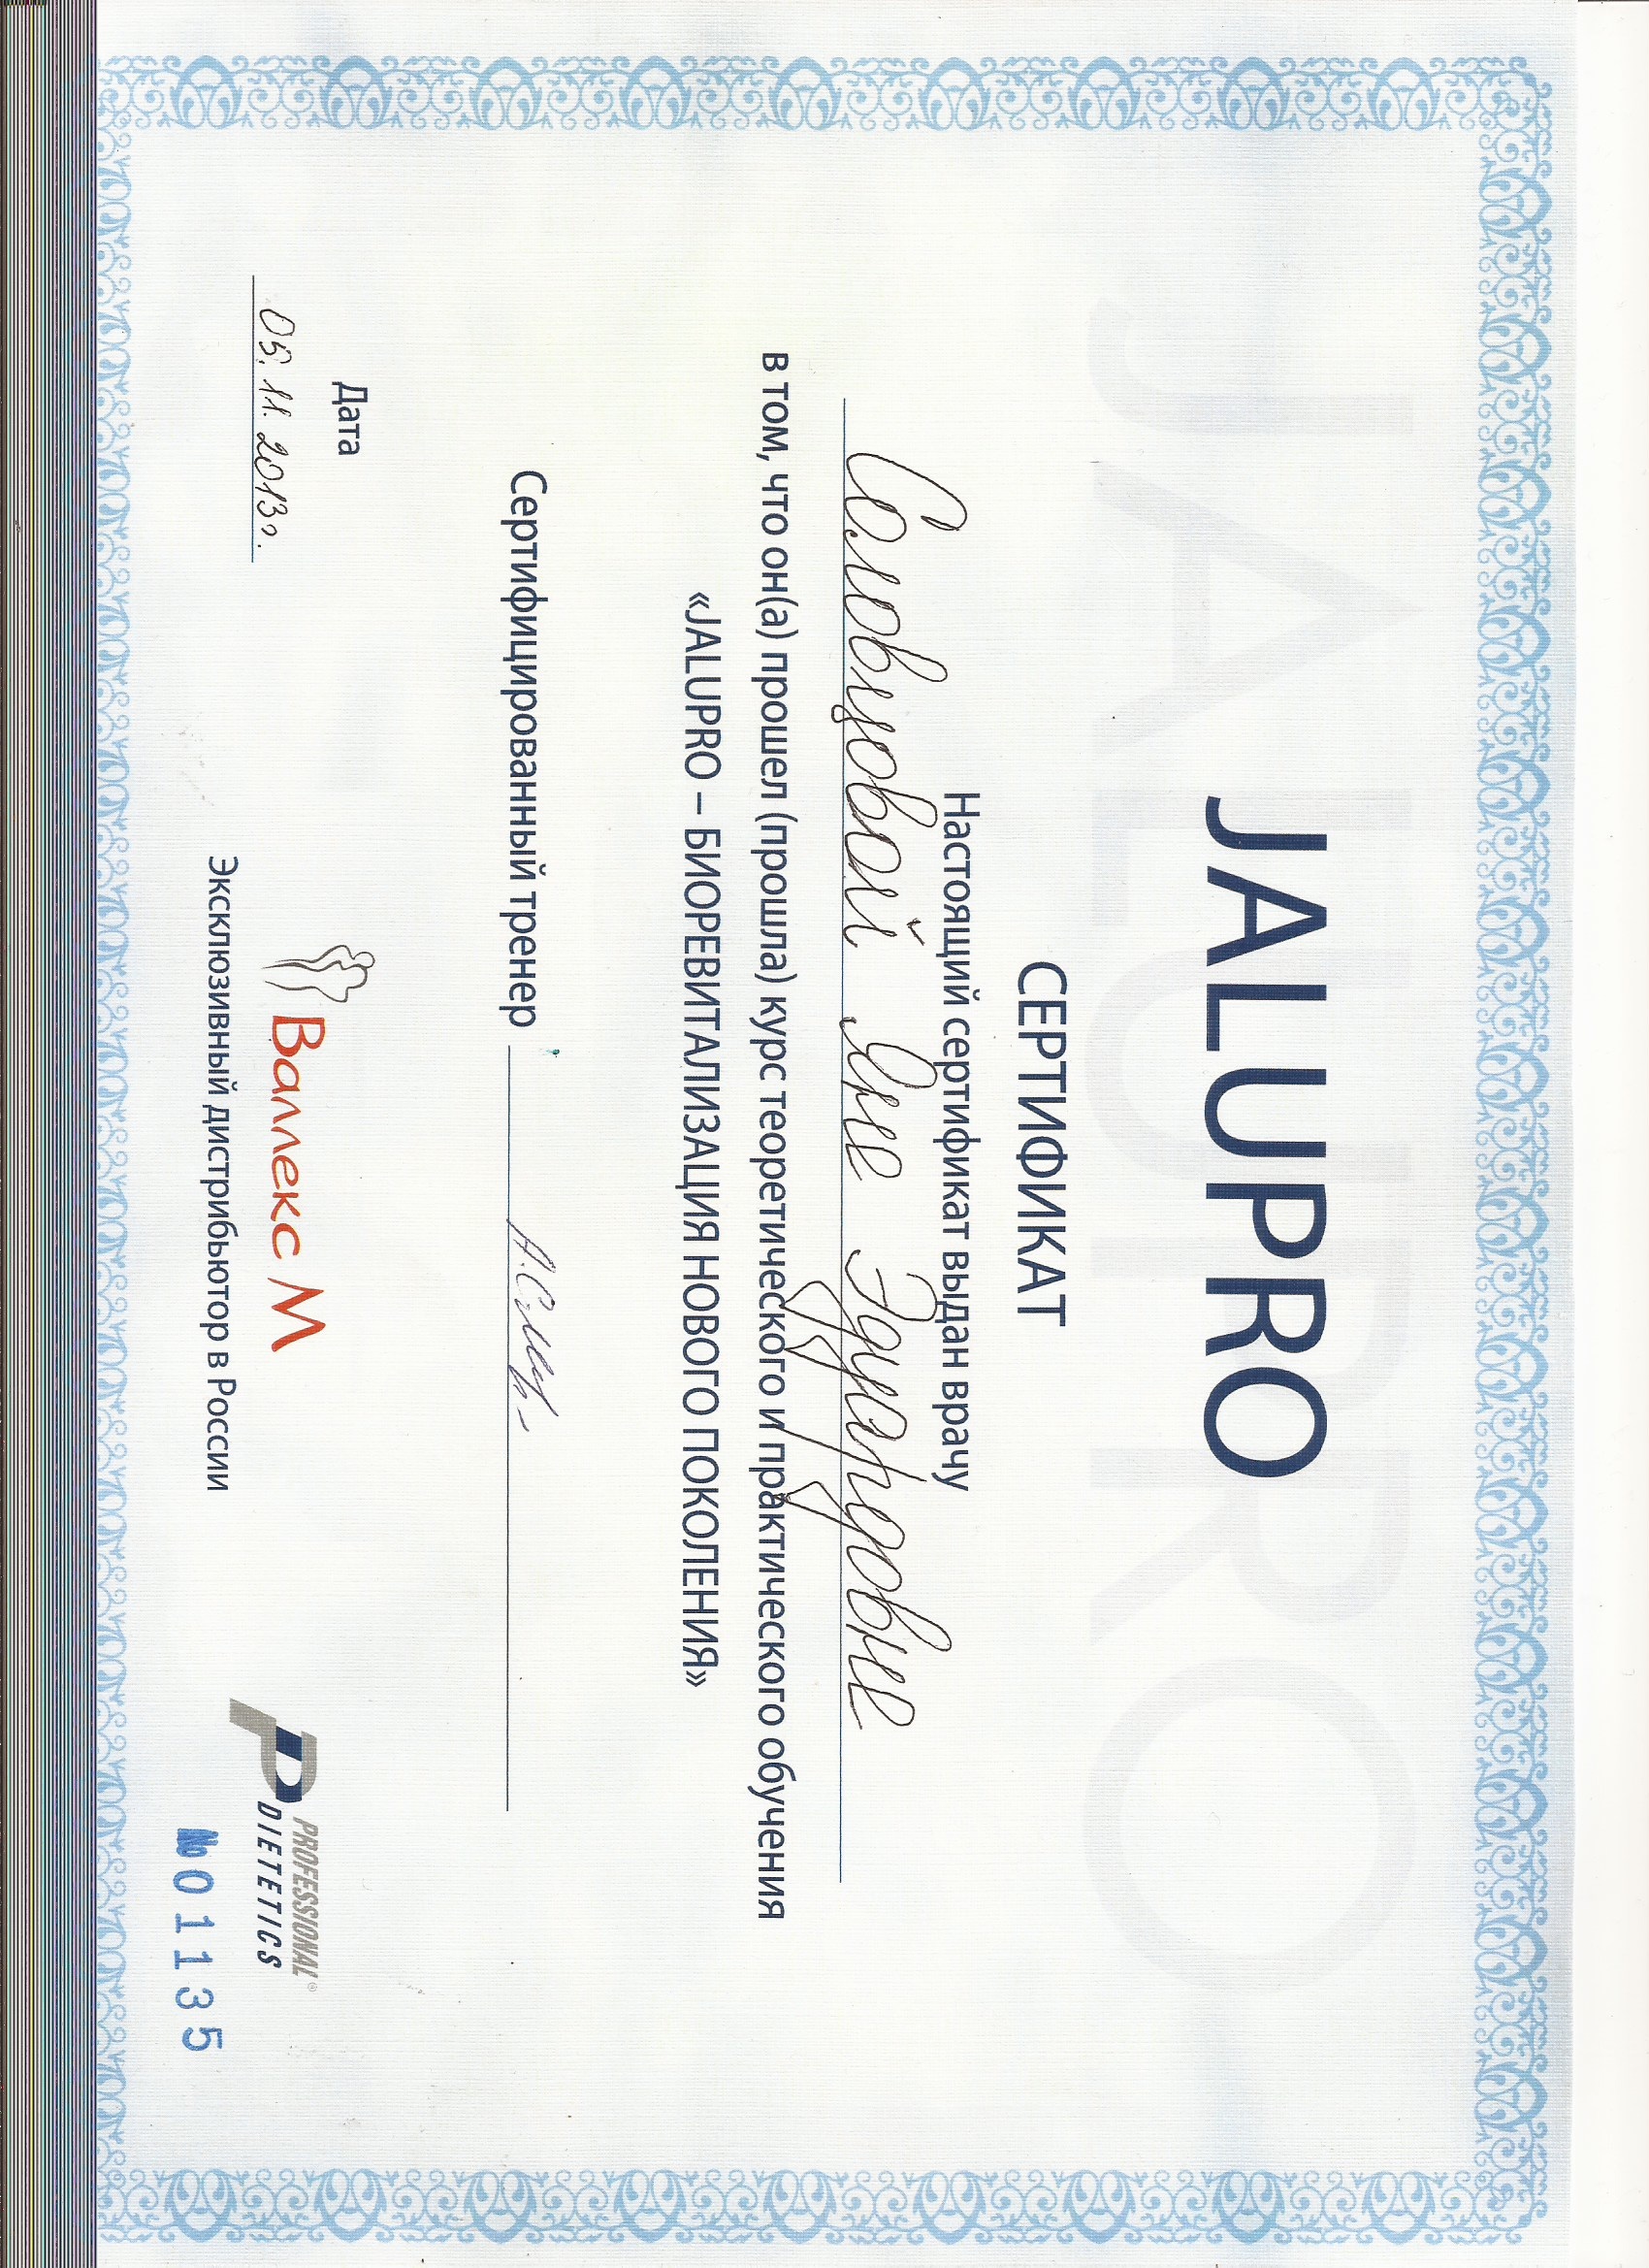 JALUPRO
СЕРТИФИКАТ
Настоящий сертификат выдан врачу
Соловцовой Яне Эдуардовне
в том, что он(а) прошел (прошла) курс теоретического и практического обучения
«JALUPRO – БИОРЕВИТАЛИЗАЦИЯ НОВОГО ПОКОЛЕНИЯ»
Сертифицированный тренер
Дата
05.11.2013г.
Валлекс М
Эксклюзивный дистрибьютор в России
PROFESSIONAL®
DIETETICS
№01135